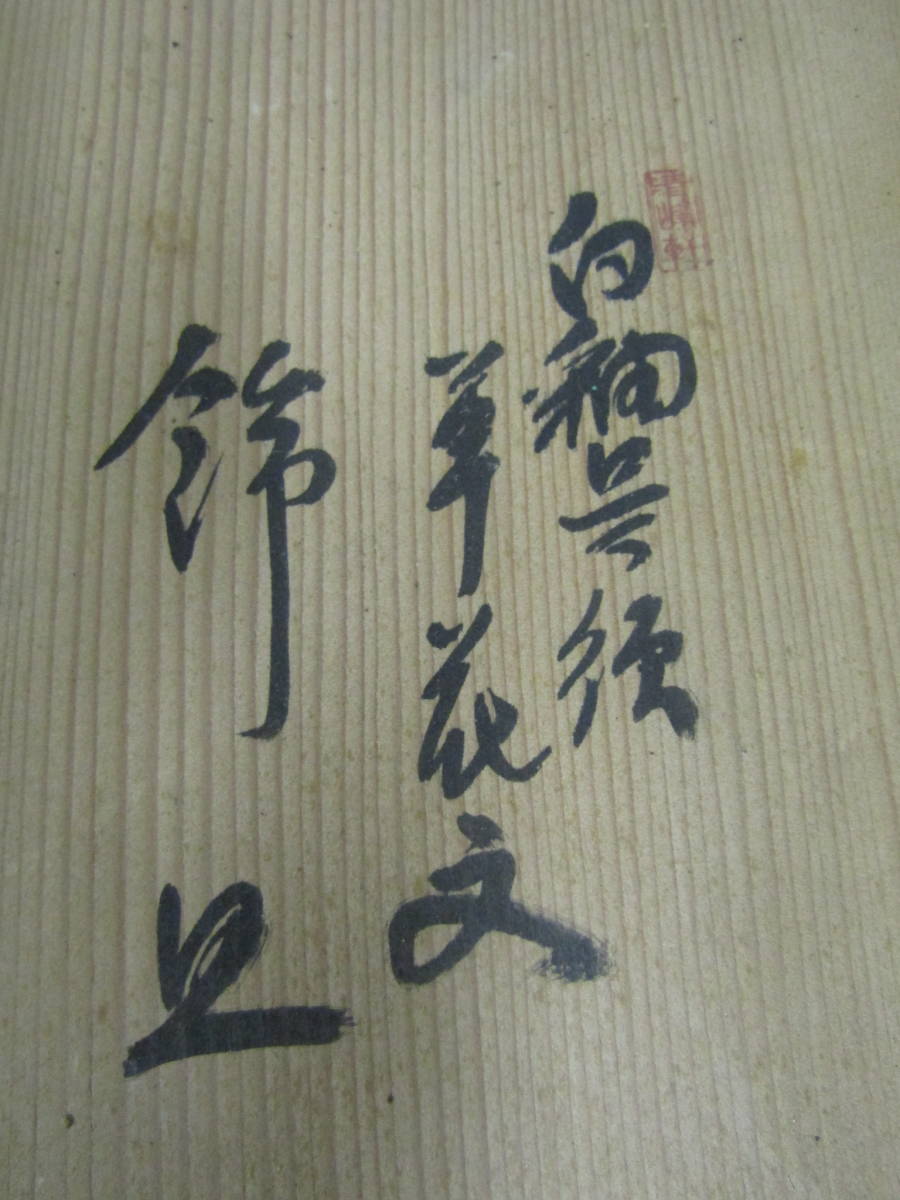 白釉呉須
草花文
飾皿